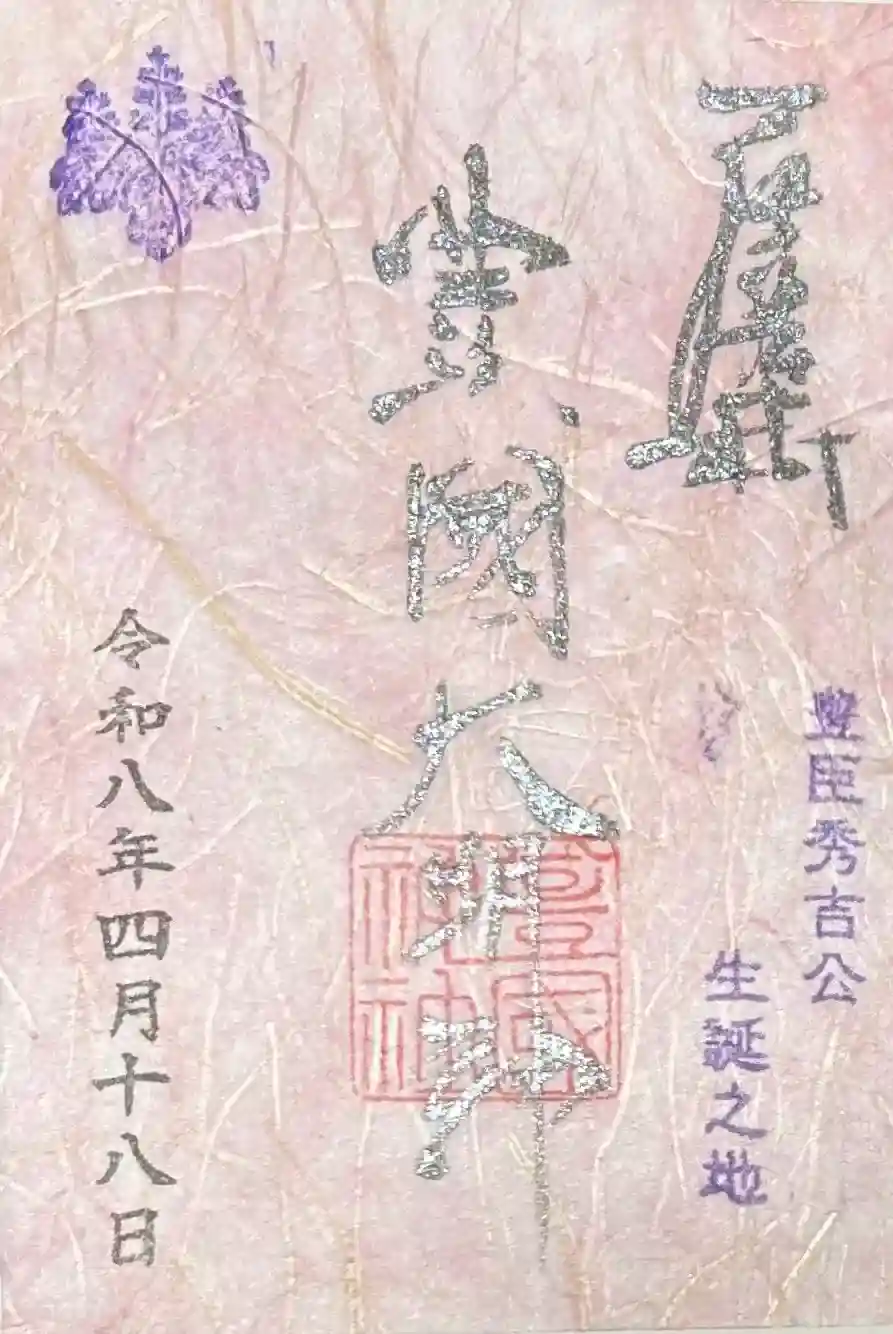 豊臣秀吉公
生誕之地
豊國大明神
豊國
神社
令和八年四月十八日